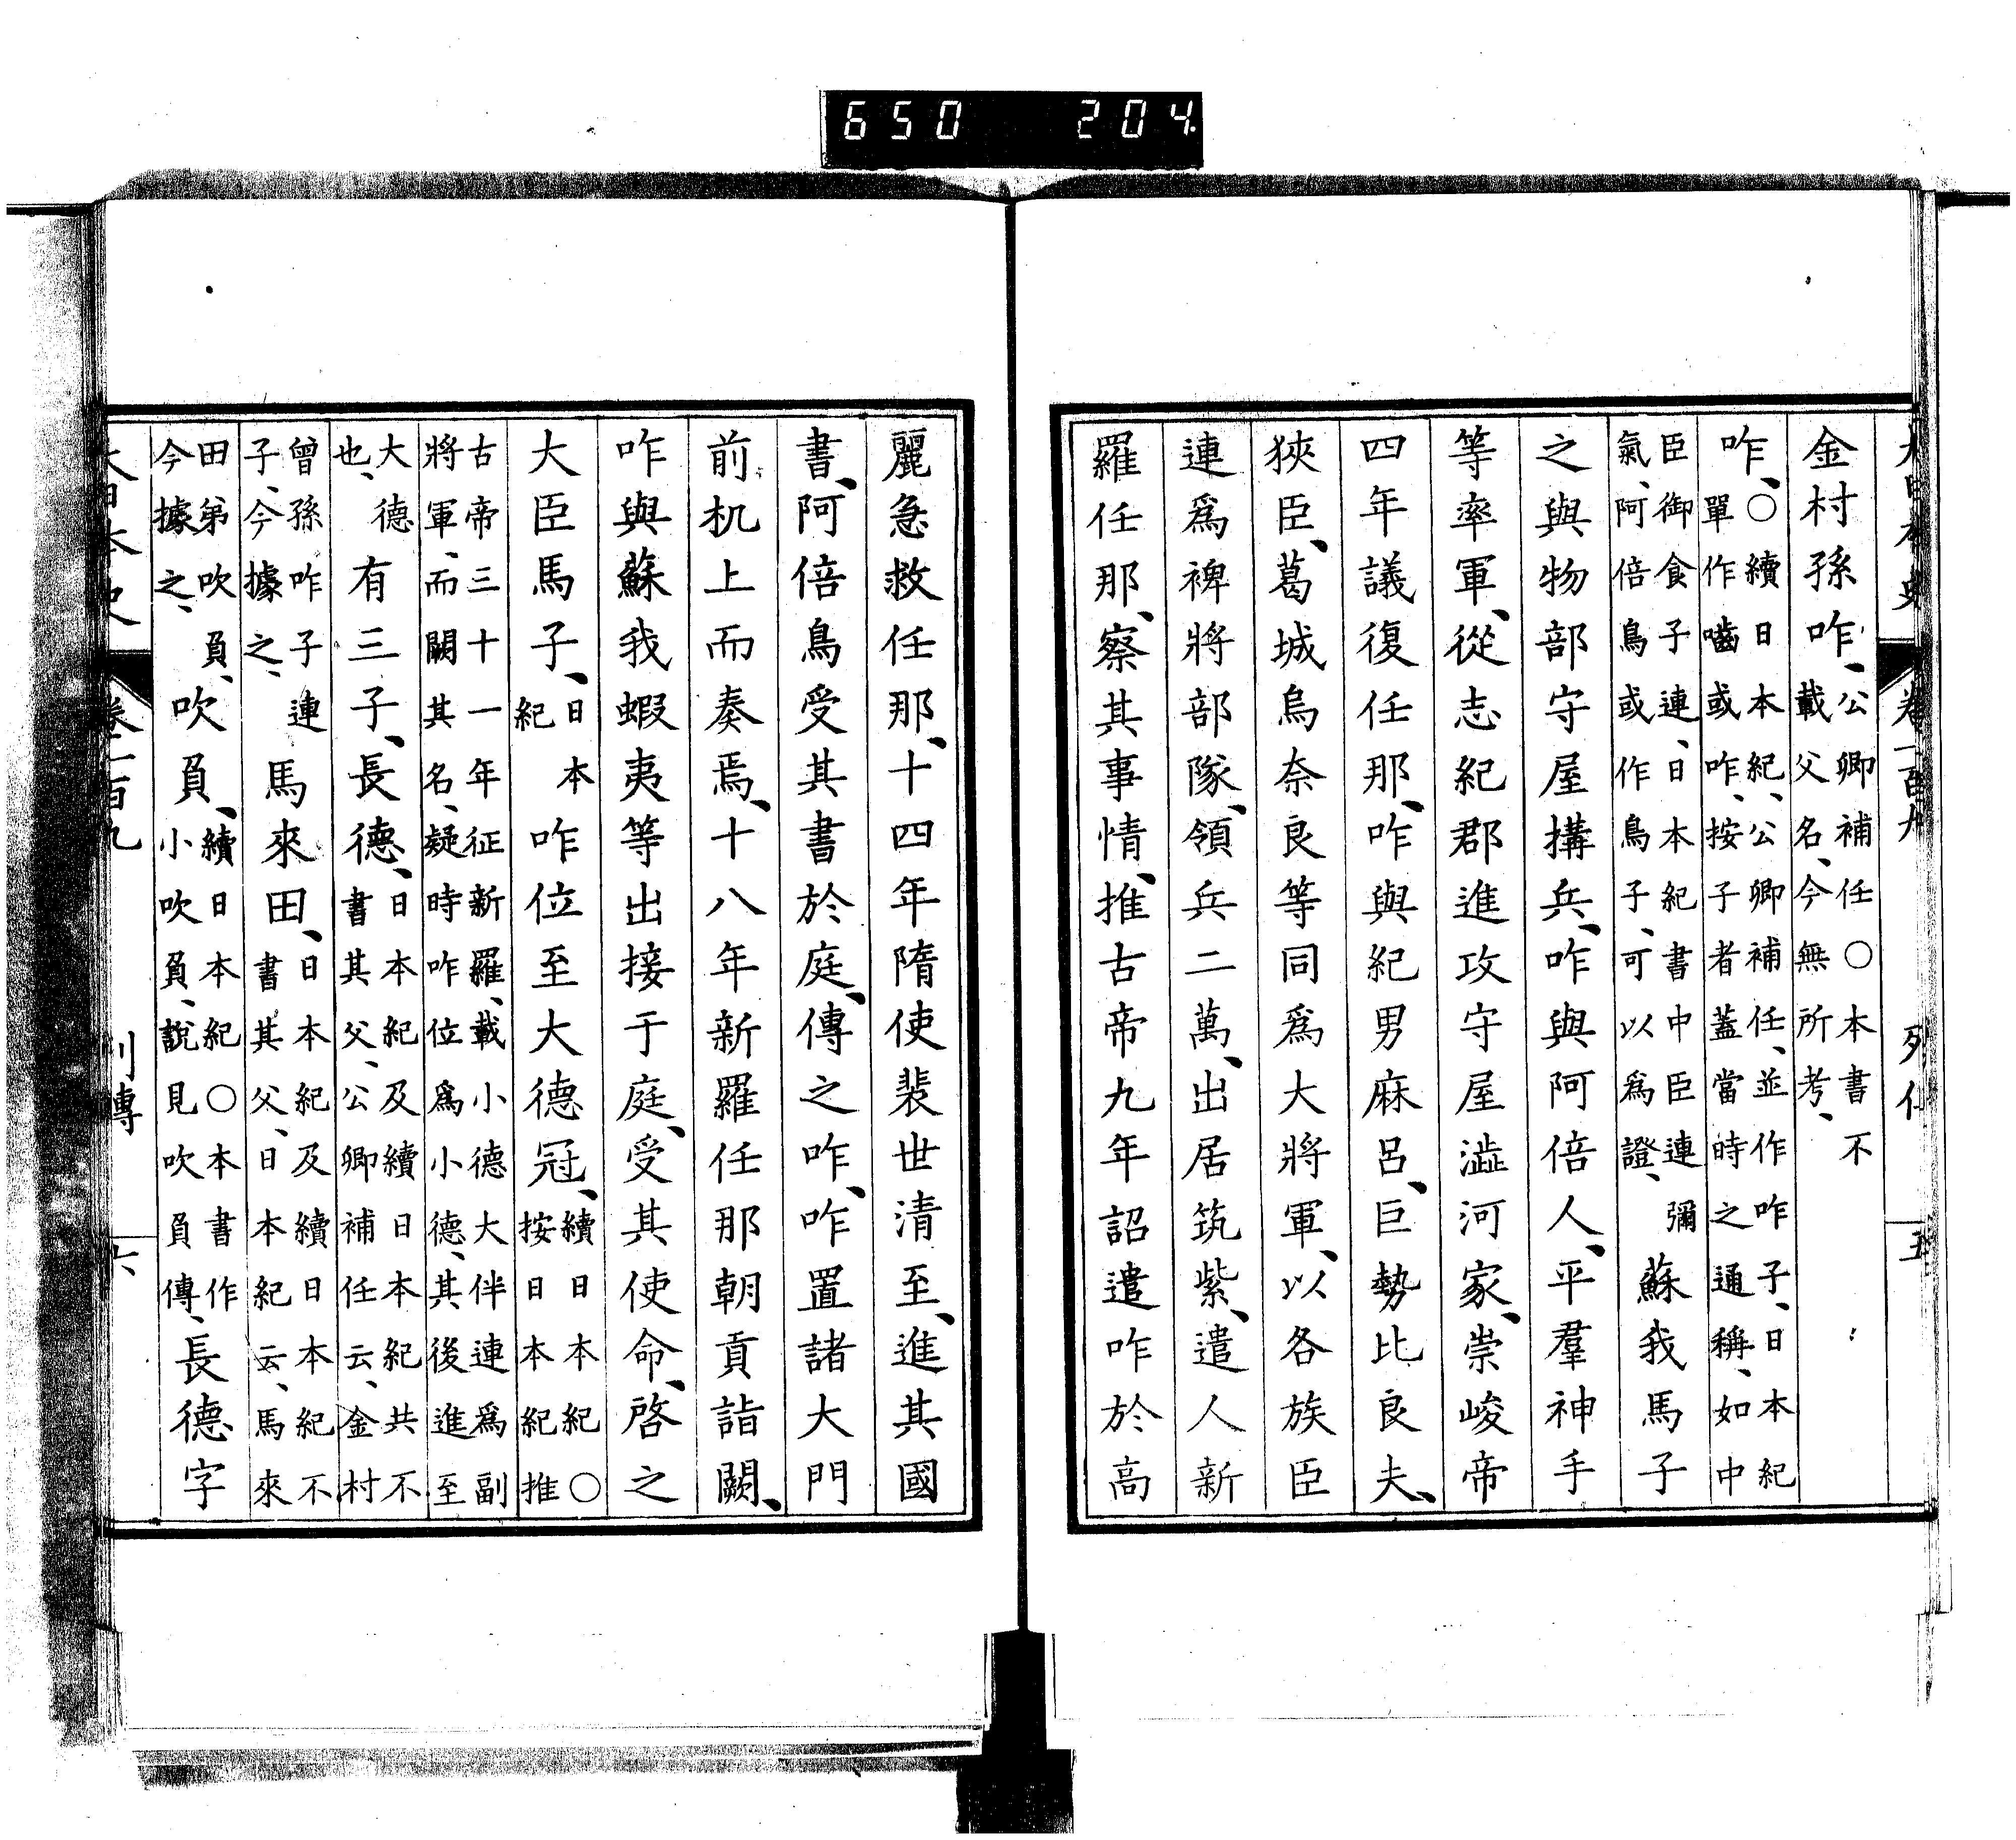 650 204
大日本史 卷一百九 列傳 五
金村孫咋、公卿補任○本書不
載父名、今無所考、
咋、○續日本紀、公卿補任、並作咋子、日本紀
單作嚙或咋、按子者蓋當時之通稱、如中
臣御食子連、日本紀書中臣連彌
氣、阿倍鳥或作鳥子、可以爲證、蘇我馬子
之與物部守屋搆兵、咋與阿倍人、平羣神手
等率軍、從志紀郡進攻守屋澁河家、崇峻帝
四年議復任那、咋與紀男麻呂、巨勢比良夫、
狹臣、葛城烏奈良等同爲大將軍、以各族臣
連爲裨將部隊、領兵二萬、出居筑紫、遣人新
羅任那、察其事情、推古帝九年詔遣咋於高
麗急救任那、十四年隋使裴世清至、進其國
書、阿倍鳥受其書於庭、傳之咋、咋置諸大門
前机上而奏焉、十八年新羅任那朝貢詣闕、
咋與蘇我蝦夷等出接于庭、受其使命、啓之
大臣馬子、日本紀 咋位至大德冠、續日本紀○
按日本紀推
古帝三十一年征新羅、載小德大伴連爲副
將軍、而闕其名、疑時咋位爲小德、其後進至
大德也、有三子、長德、日本紀及續日本紀共不
書其父、公卿補任云、金村
曾孫咋子連
子、今據之、馬來田、日本紀及續日本紀不
書其父、日本紀云、馬來
田弟吹負、
今據之、吹負、續日本紀○本書作
小吹負、說見吹負傳、長德字
大日本史 卷一百九 列傳 六